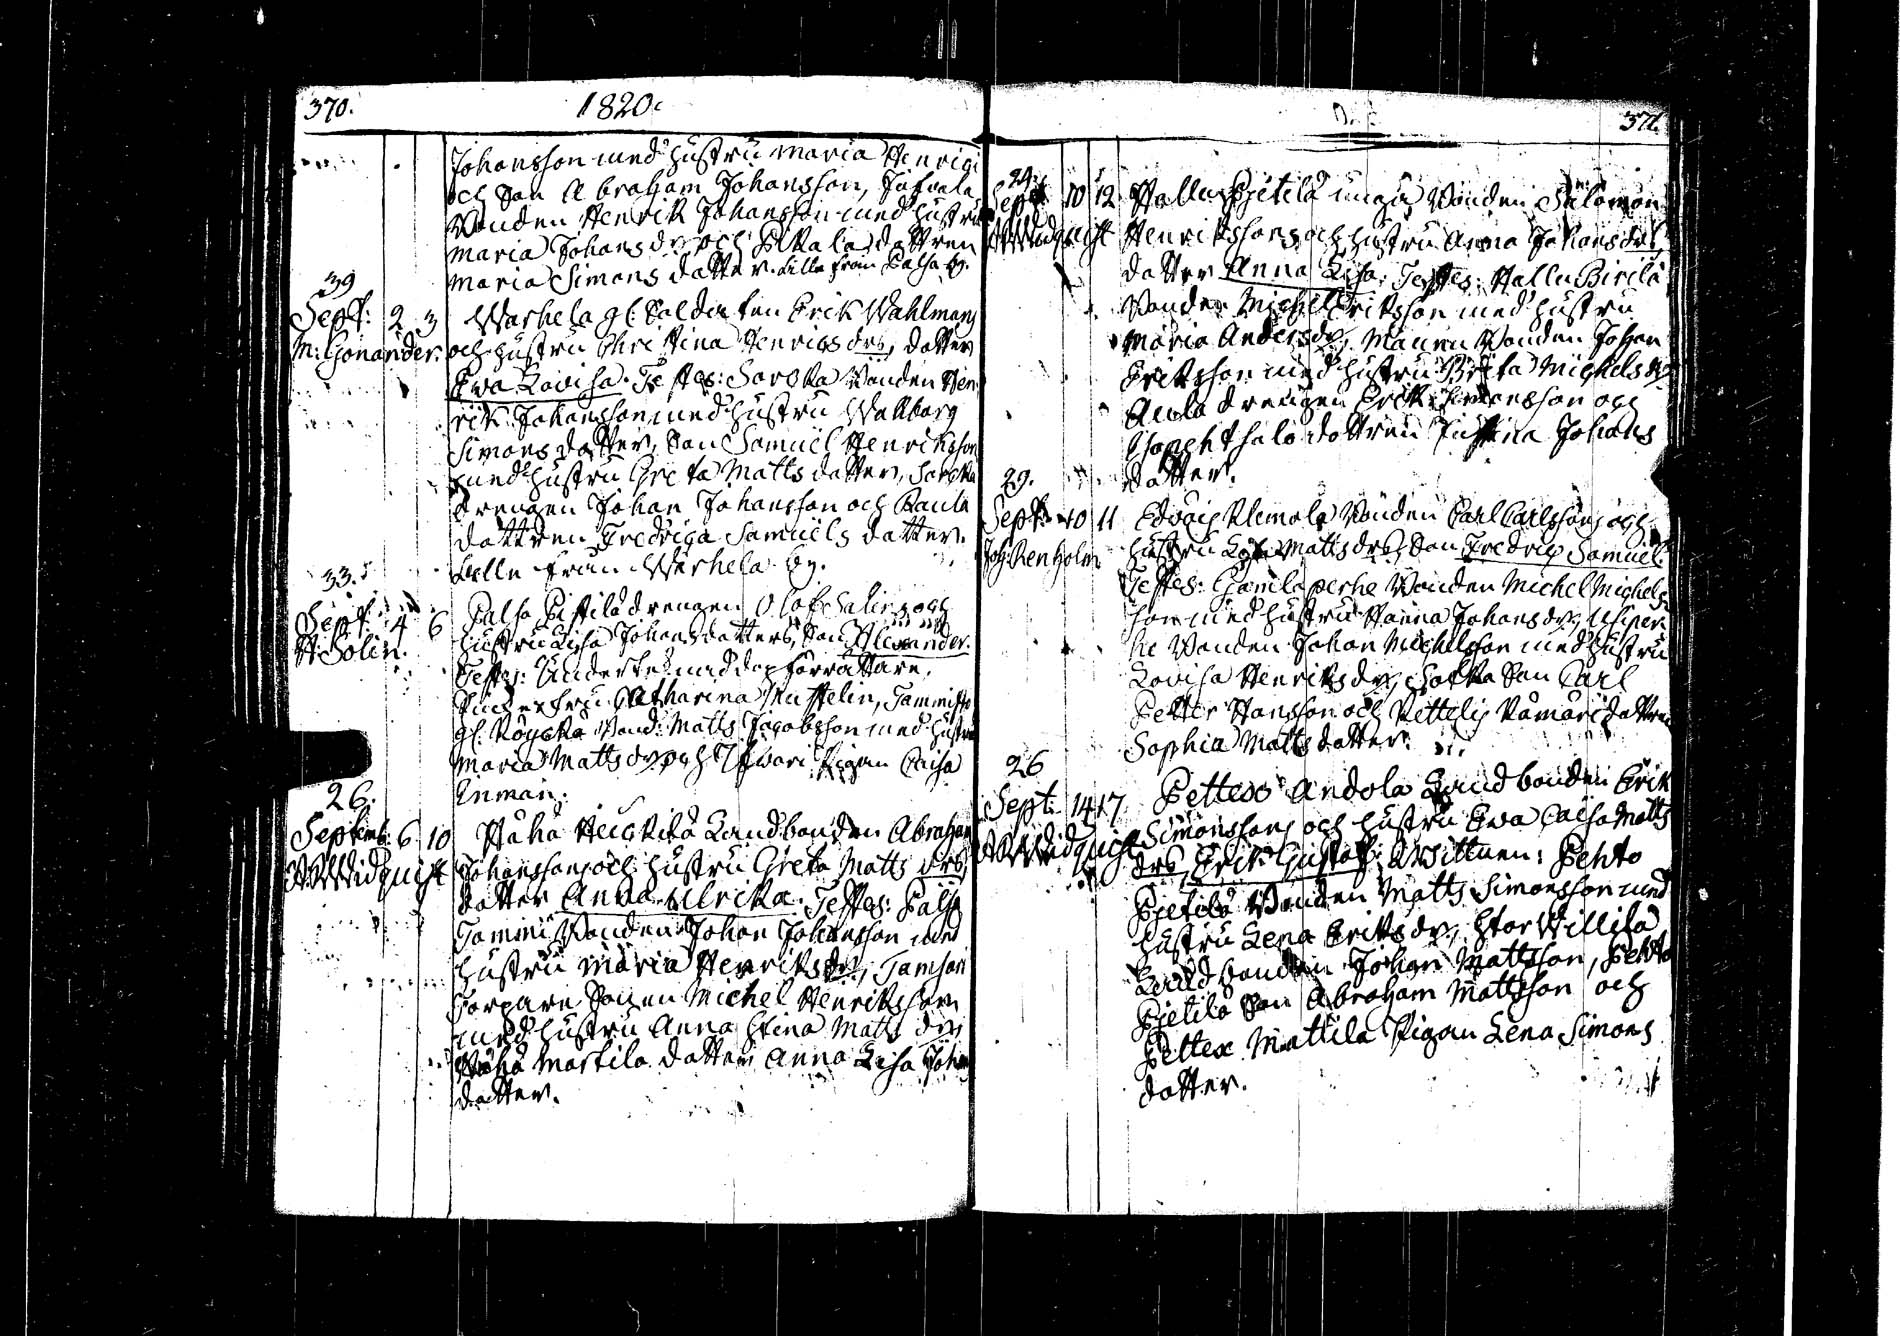 370.
1820.
Johansson med hustru Maria Henrics
och Son Abraham Johansson,
Bonden Henrik Johansson med hustru
Maria Johans dr och dottren
Maria Simons dotter. Alla från Palsa by.
39
Sept: 2 3
M: Gonander.
Warhela gl: Soldaten Erik Wahlmans
och hustru Christina Henrics drs, dotter
Ewa Lovisa. Testes: Sorvka Bonden Hen
rik Johansson med hustru Wallborg
Simons dotter, Son Samuel Henriksson
med hustru Greta Matts dotter, Sorvka
drengen Johan Johansson och Paula
dottren Fredrica Samuels dotter.
Alla från Warhela by.
33.
Sept: 4 6
H: Solin.
Palsa drengen Olof Salins och
hustru Lisa Johans dotters, Son Alexander.
Testes: Undertecknad dopförrättare,
Catharina Mustelin, Tammisto
gl. Röyckä Bond: Matts Jacobsson med hustru
Maria Matts dr och Pigan Caisa
Enman.
26.
Septemb: 6 10
A Widquist
Wähä Heickilä Landbonden Abraham
Johanssons och hustru Greta Matts drs,
dotter Anna Ulrika. Testes: Palsa
Tammi Bonden Johan Johansson med
hustru Maria Henriks dr,
Torpare Sonen Michel Henriksson
med hustru Anna Stina Matts dr,
Wähä Markila dotter Anna Lisa Johans
dotter.
371.
24.
Sept 10 12
A Widquist
Hallu Pjetilä unga Bonden Salomon
Henrikssons och hustru Anna Johans drs
dotter Anna Lisa. Testes: Hallu Pirilä
Bonden Michel Eriksson med hustru
Maria Anders dr, Maunu Bonden Johan
Eriksson med hustru Brita Michels dr
drengen Erik Simonsson och
dottren Justina Johans
dotter.
29.
Sept: 10 11
Joh: Renholm
Edväis Alemola Bonden Carl Carlssons och
hustru Matts drs, Son Fredrix Samuel.
Testes: Gamlaperhe Bonden Michel Michels
son med hustru Hanna Johans dr, Usiper
he Bonden Johan Michelsson med hustru
Lovisa Henriks dr, Son Carl
Petter Hansson och dottren
Sophia Matts dotter.
26
Sept: 14 17
A Widquist
Pettexo Andola Landbonden Erik
Simonssons och hustru Ewa Caisa Matts
drs, Erik Gustaf. Wittnen: Pehto
Pjetilä Bonden Matts Simonsson med
hustru Lena Eriks dr, Stor Willilä
Landbonden Johan Mattsson, Pehto
Pjetilä Son Abraham Mattsson och
Pettexe Mattila Pigan Lena Simons
dotter.